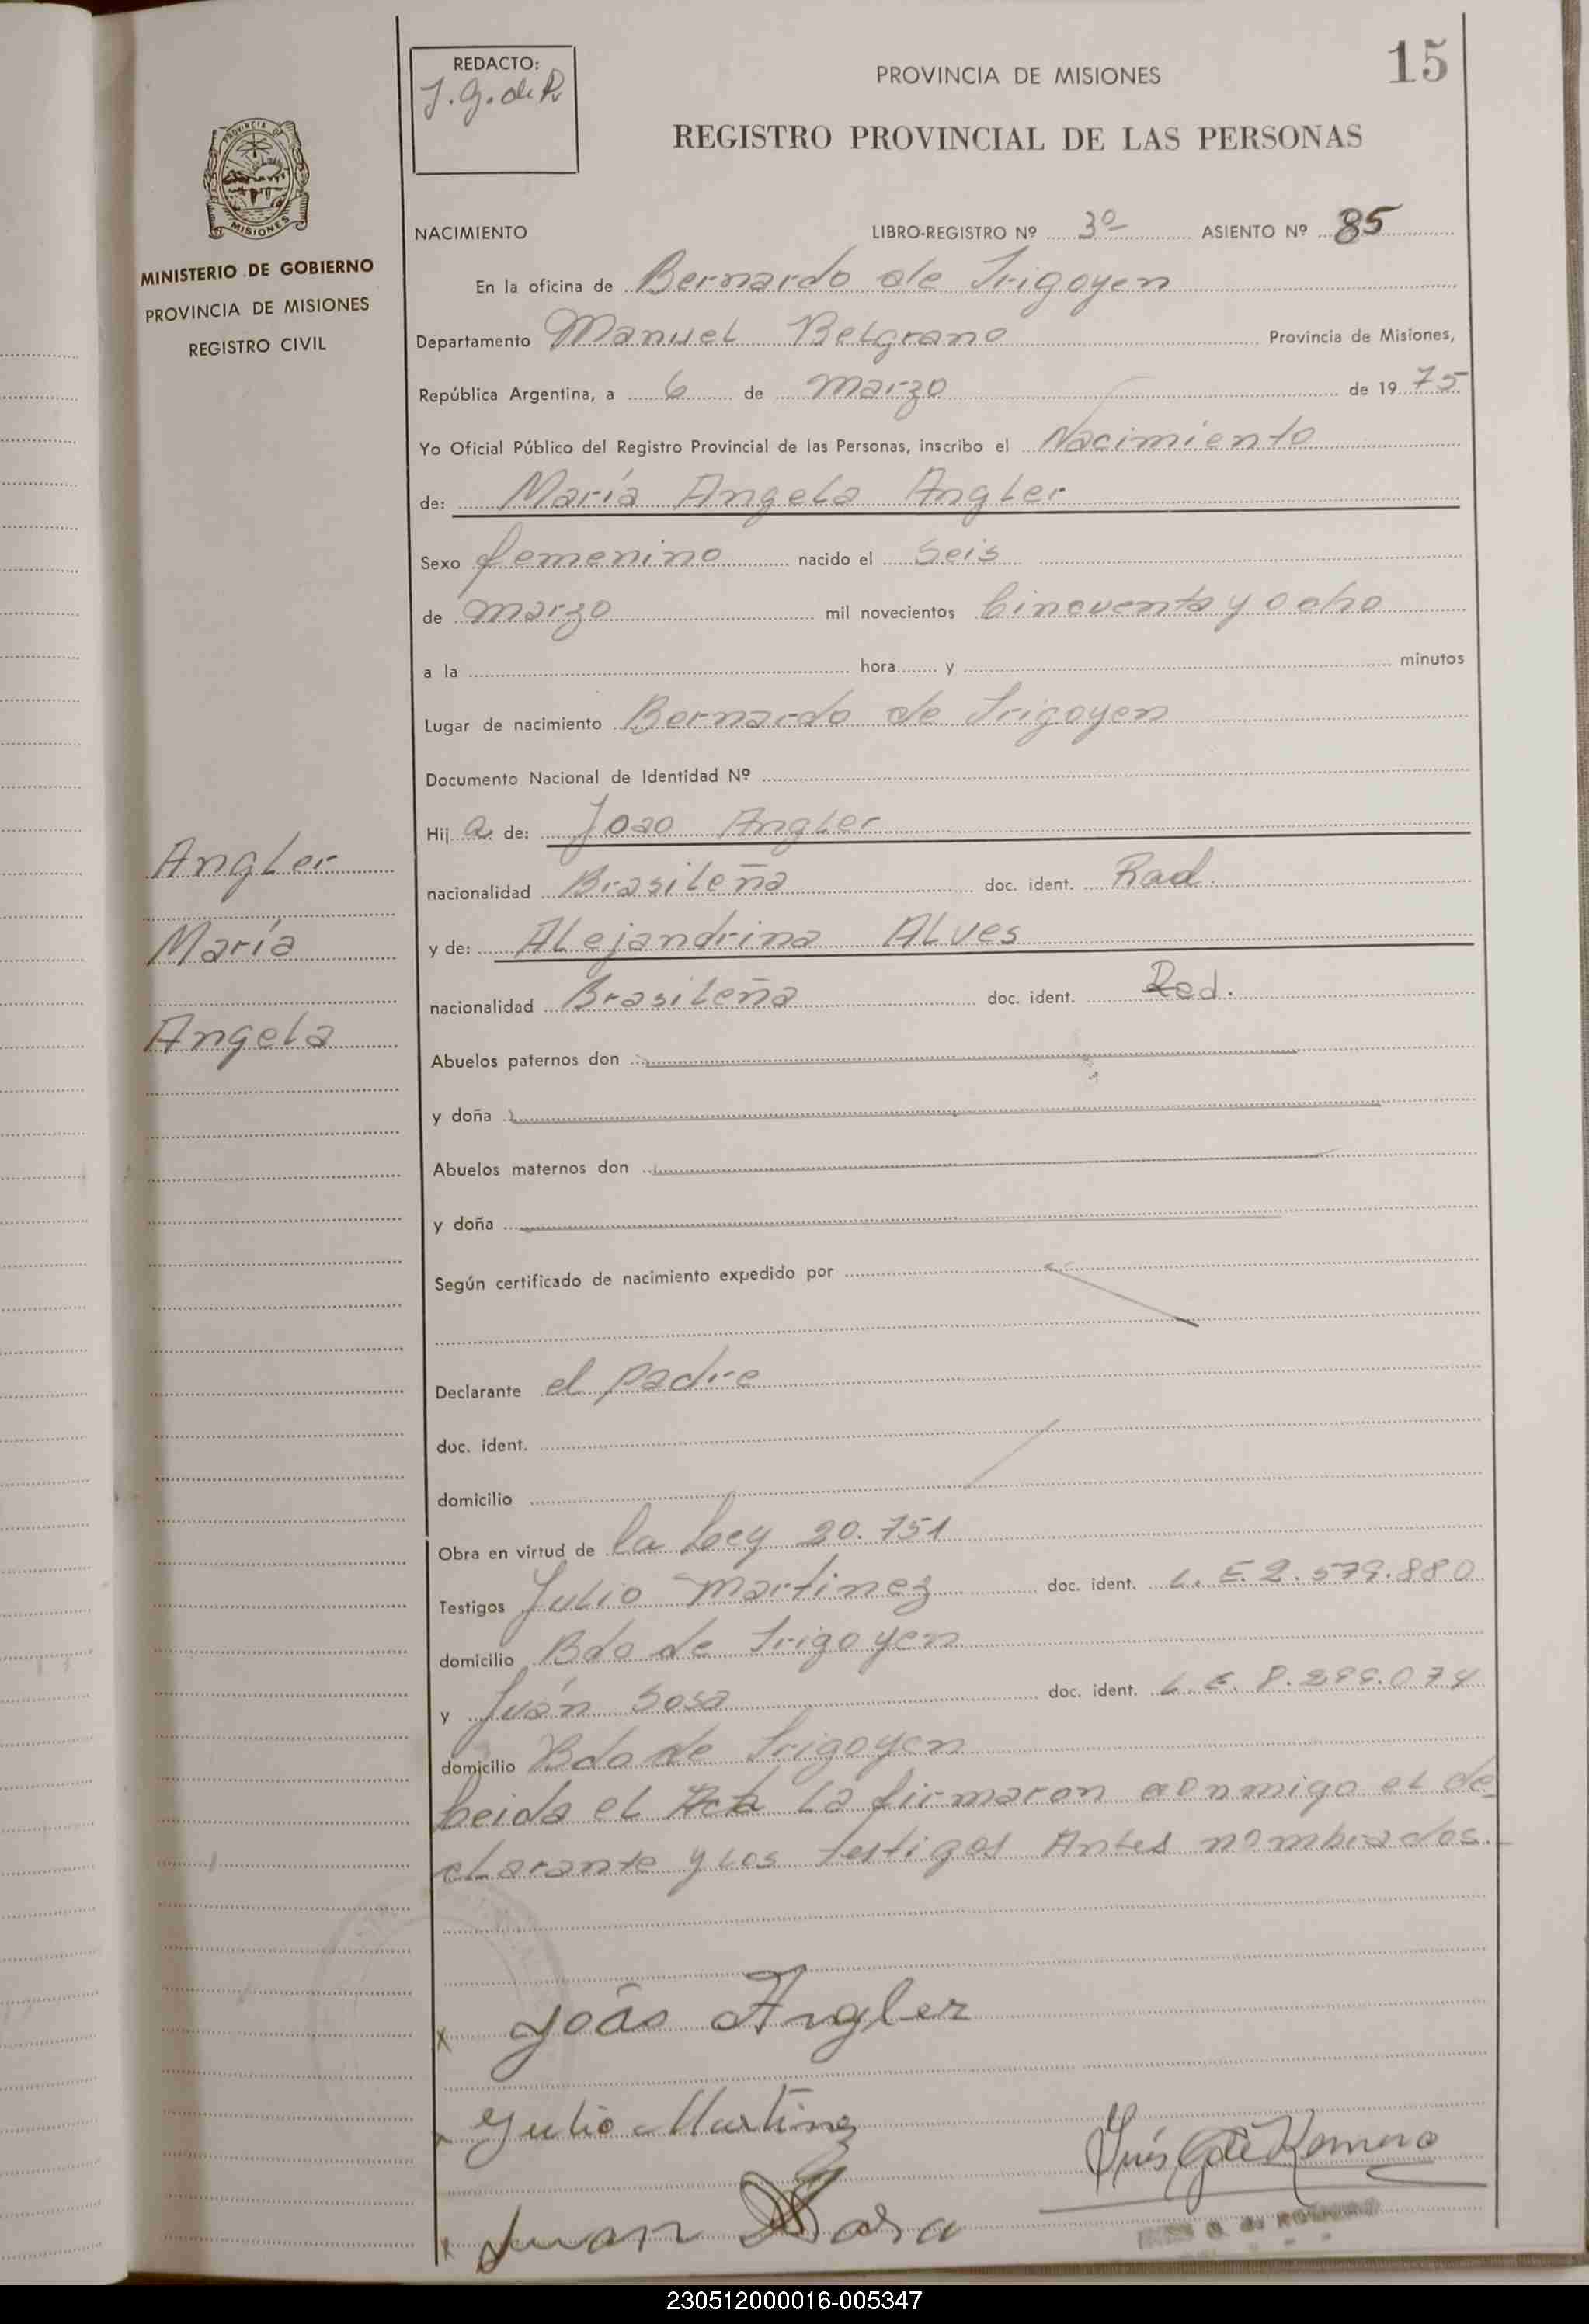 15
REDACTO:
J. G. de R
PROVINCIA DE MISIONES
REGISTRO PROVINCIAL DE LAS PERSONAS
PROVINCIA
MISIONES
MINISTERIO DE GOBIERNO
PROVINCIA DE MISIONES
REGISTRO CIVIL
NACIMIENTO LIBRO-REGISTRO Nº 3º ASIENTO Nº 85
En la oficina de Bernardo de Irigoyen
Departamento Manuel Belgrano Provincia de Misiones,
República Argentina, a 6 de marzo de 1975
Yo Oficial Público del Registro Provincial de las Personas, inscribo el Nacimiento
de: María Angela Angler
Sexo femenino nacido el Seis
de marzo mil novecientos Cincuenta y ocho
a la hora y minutos
Lugar de nacimiento Bernardo de Irigoyen
Documento Nacional de Identidad Nº
Hij a de: Joao Angler
nacionalidad Brasileña doc. ident. Rad.
y de: Alejandrina Alves
nacionalidad Brasileña doc. ident. Red.
Angler
María
Angela
Abuelos paternos don
y doña
Abuelos maternos don
y doña
Según certificado de nacimiento expedido por
Declarante el padre
doc. ident.
domicilio
Obra en virtud de la Ley 20.751
Testigos Julio Martinez doc. ident. L. E. 2.579.880
domicilio Bdo de Irigoyen
y Juán Sosa doc. ident. L. E.
domicilio Bdo de Irigoyen
Leida el Acta la firmaron conmigo el de-
clarante y los testigos Antes nombrados.
x João Angler
Julio Martinez
x Juan Sosa
Inés G de Romero
230512000016-005347